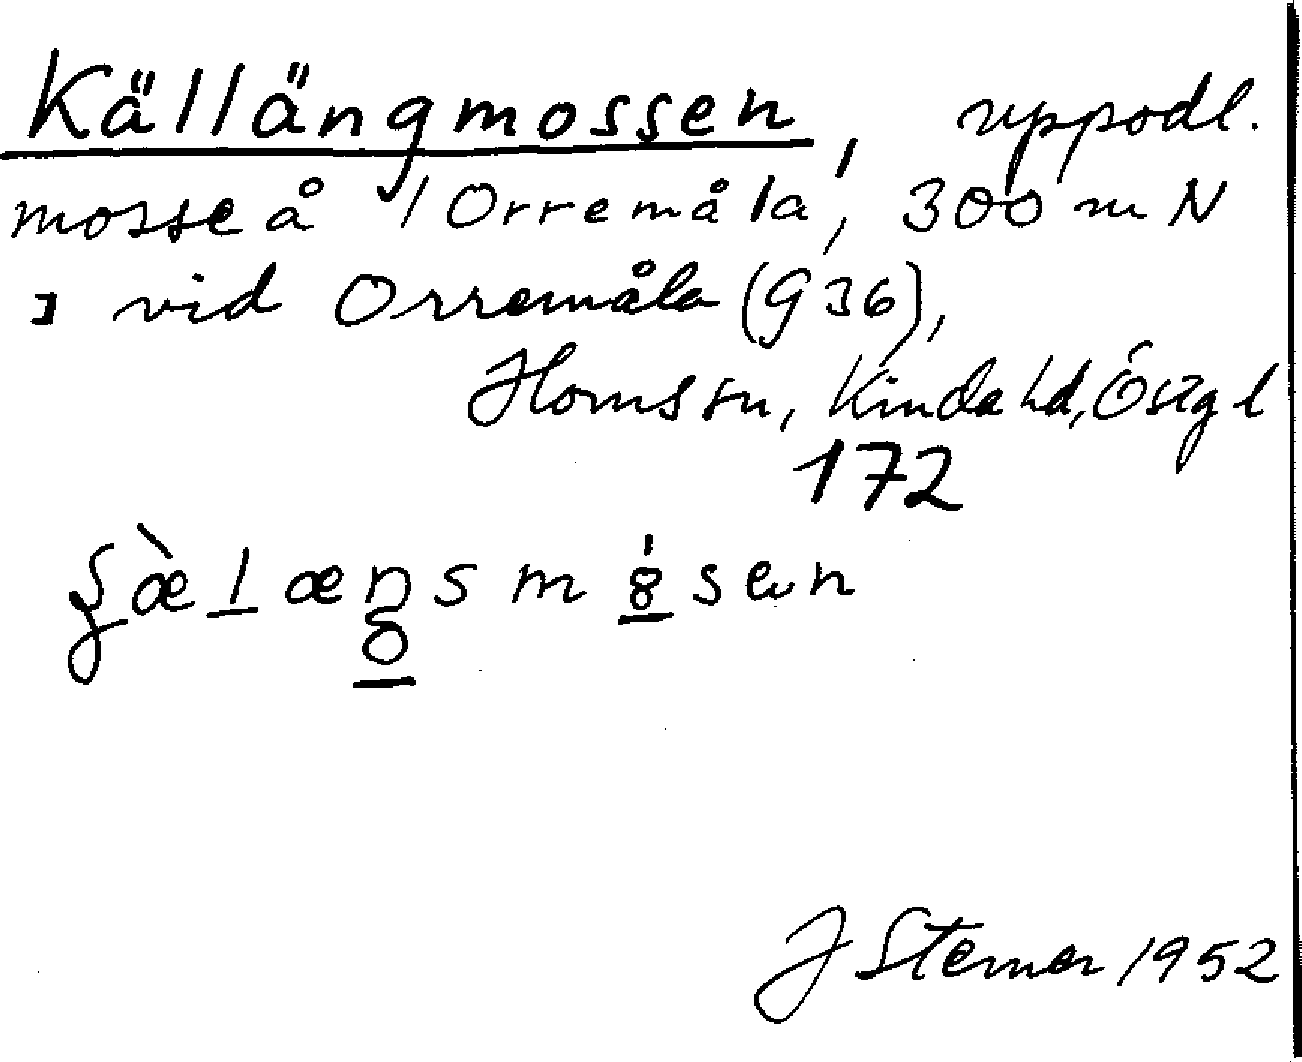 Källängmossen, uppodl.
mosse å / Orremåla, 300 m N
ɪ vid Orremåla (G 36),
Horns sn, Kinda hd, Östgl
172
J Sterner 1952